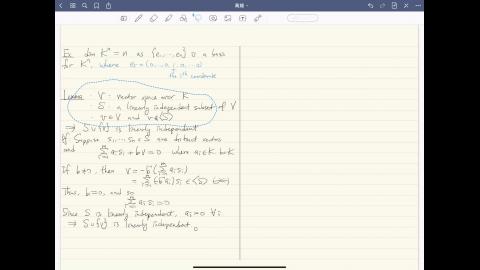 Ex dim Kⁿ = n as {e₁, ..., eₙ} is a basis
for Kⁿ, where eᵢ = (0, ..., 0, 1, 0, ..., 0)
the iᵗʰ coordinate
Lemma · V : vector space over K
· S : a linearly independent subset of V
· v ∈ V and v ∉ ⟨S⟩
⇒ S ∪ {v} is linearly independent
pf Suppose s₁, ..., sₙ ∈ S are distinct vectors
and Σᵢ₌₁ⁿ aᵢsᵢ + bv = 0 where aᵢ ∈ K, b ∈ K
If b ≠ 0, then v = -b⁻¹(Σᵢ₌₁ⁿ aᵢsᵢ)
= Σᵢ₌₁ⁿ (-b⁻¹aᵢ)sᵢ ∈ ⟨S⟩
Thus, b = 0, and so
Σᵢ₌₁ⁿ aᵢsᵢ = 0
Since S is linearly independent, aᵢ = 0 ∀ i
⇒ S ∪ {v} is linearly independent